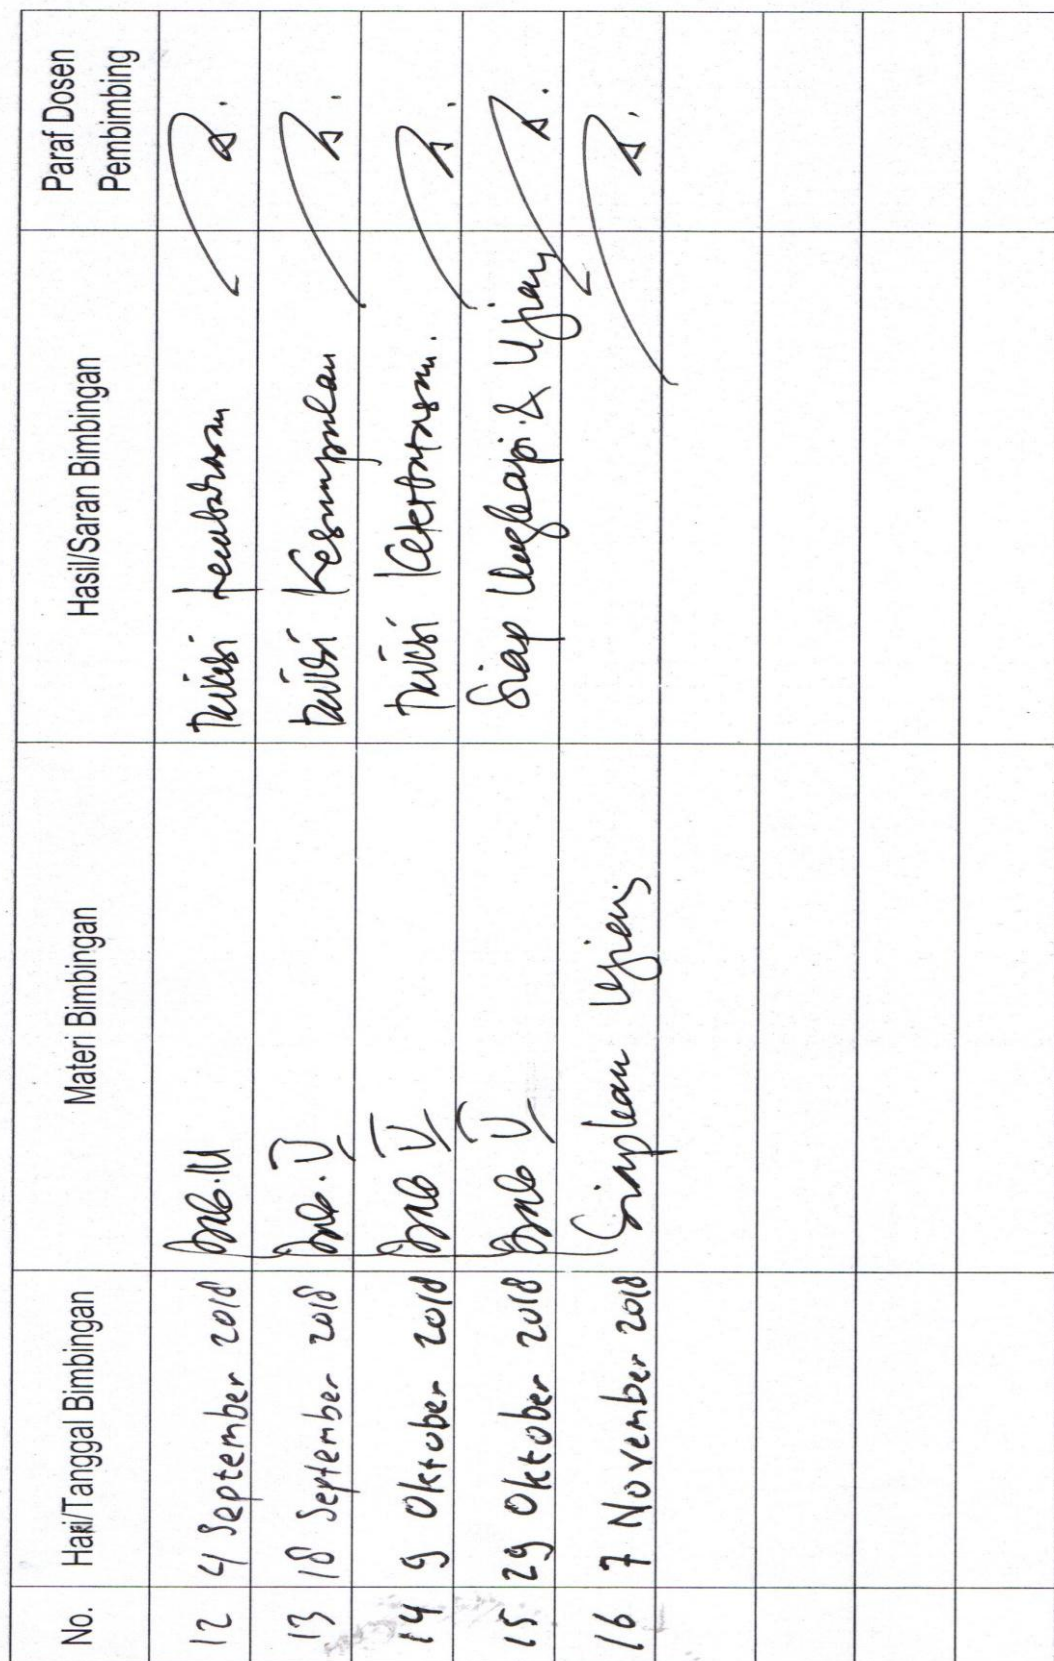 No. Hari/Tanggal Bimbingan Materi Bimbingan Hasil/Saran Bimbingan Paraf Dosen Pembimbing
12 4 September 2018 Bab. IV Revisi pembahasan
13 18 September 2018 Bab. V Revisi Kesimpulan
14 9 Oktober 2018 Bab V Revisi Keterbatasan.
15 29 Oktober 2018 Bab V Siap & Ujian
16 7 November 2018 Siapkan Ujian